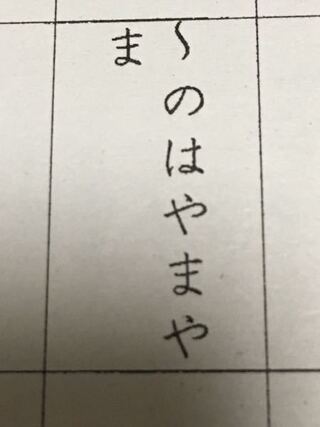 〜のはやまや
ま